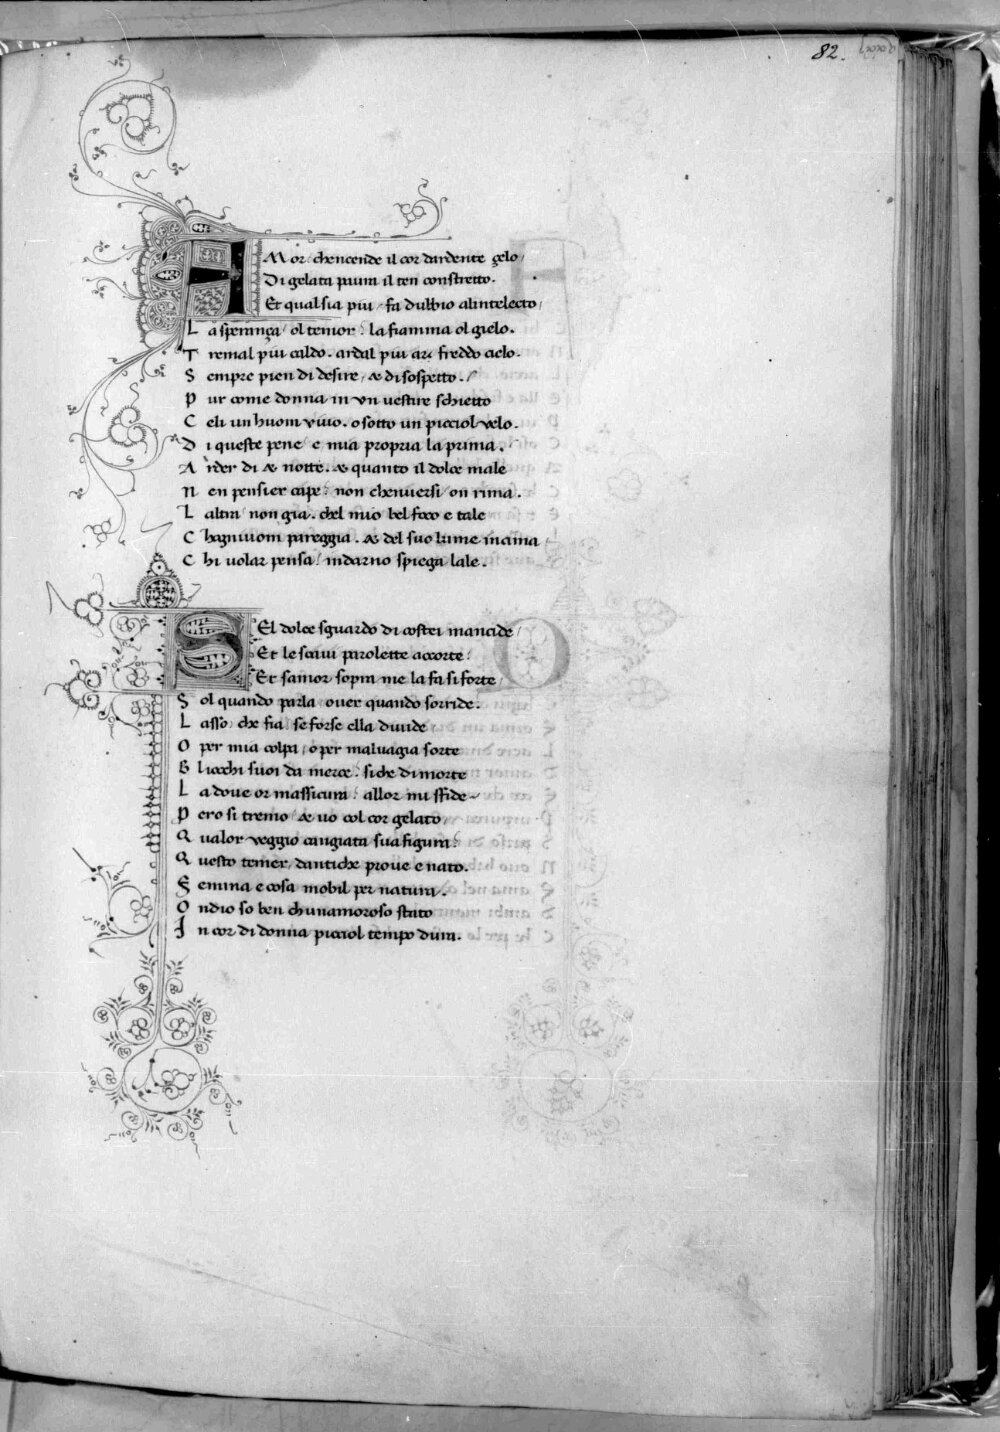 82.
AMor. chencende il cor dardente gelo/
Di gelata paura il ten constretto.
Et qual sia piu/ fa dubbio alintelecto/
La speranҫa/ ol temor: la fiamma ol gielo.
Tremal piu caldo. ardal piu
Sempre pien di desire/ & di sospetto./
Pur come donna in un uestire schietto
Celi un huom viuo. o sotto un picciol velo.
Di queste pene/ e mia propria la prima./
Arder di & notte. & quanto il dolce male
Nen pensier cape: non chenuersi/ on rima.
Laltra/ non gia. chel mio bel foco e tale
Chogniuom pareggia. & del suo lume incima
Chi uolar pensa/ indarno spiega lale.
SEl dolce sguardo di costei mancide/
Et le soaui parolette accorte:
Et samor sopra me la fa si forte/
Sol quando parla/ ouer quando sorride:
Lasso/ che fia/ se forse ella diuide
O per mia colpa/ o per maluagia sorte
Gliocchi suoi da merce: si che di morte
La doue or massicura: allor mi sfide
Pero si tremo/ & uo col cor gelato/
Qualor veggio cangiata sua figura:
Questo temer/ dantiche proue e nato.
Femina e cosa mobil per natura.
Ondio so ben chunamoroso stato
In cor di donna picciol tempo dura.